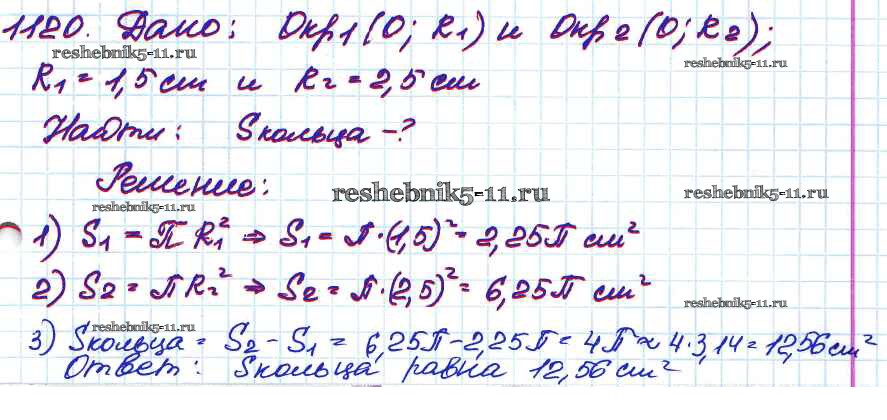 1120. Дано: Окр1(O; R1) и Окр2(O; R2);
reshebnik5-11.ru
reshebnik5-11.ru
R1 = 1,5 см и R2 = 2,5 см
Найти: Sкольца -?
Решение:
reshebnik5-11.ru
reshebnik5-11.ru
reshebnik5-11.ru
1) S1 = π R1² ⇒ S1 = π·(1,5)² = 2,25π см²
2) S2 = πR2² ⇒ S2 = π·(2,5)² = 6,25π см²
reshebnik5-11.ru
reshebnik5-11.ru
3) Sкольца = S2 - S1 = 6,25π - 2,25π = 4π ≈ 4·3,14 = 12,56 см²
Ответ: Sкольца равна 12,56 см²